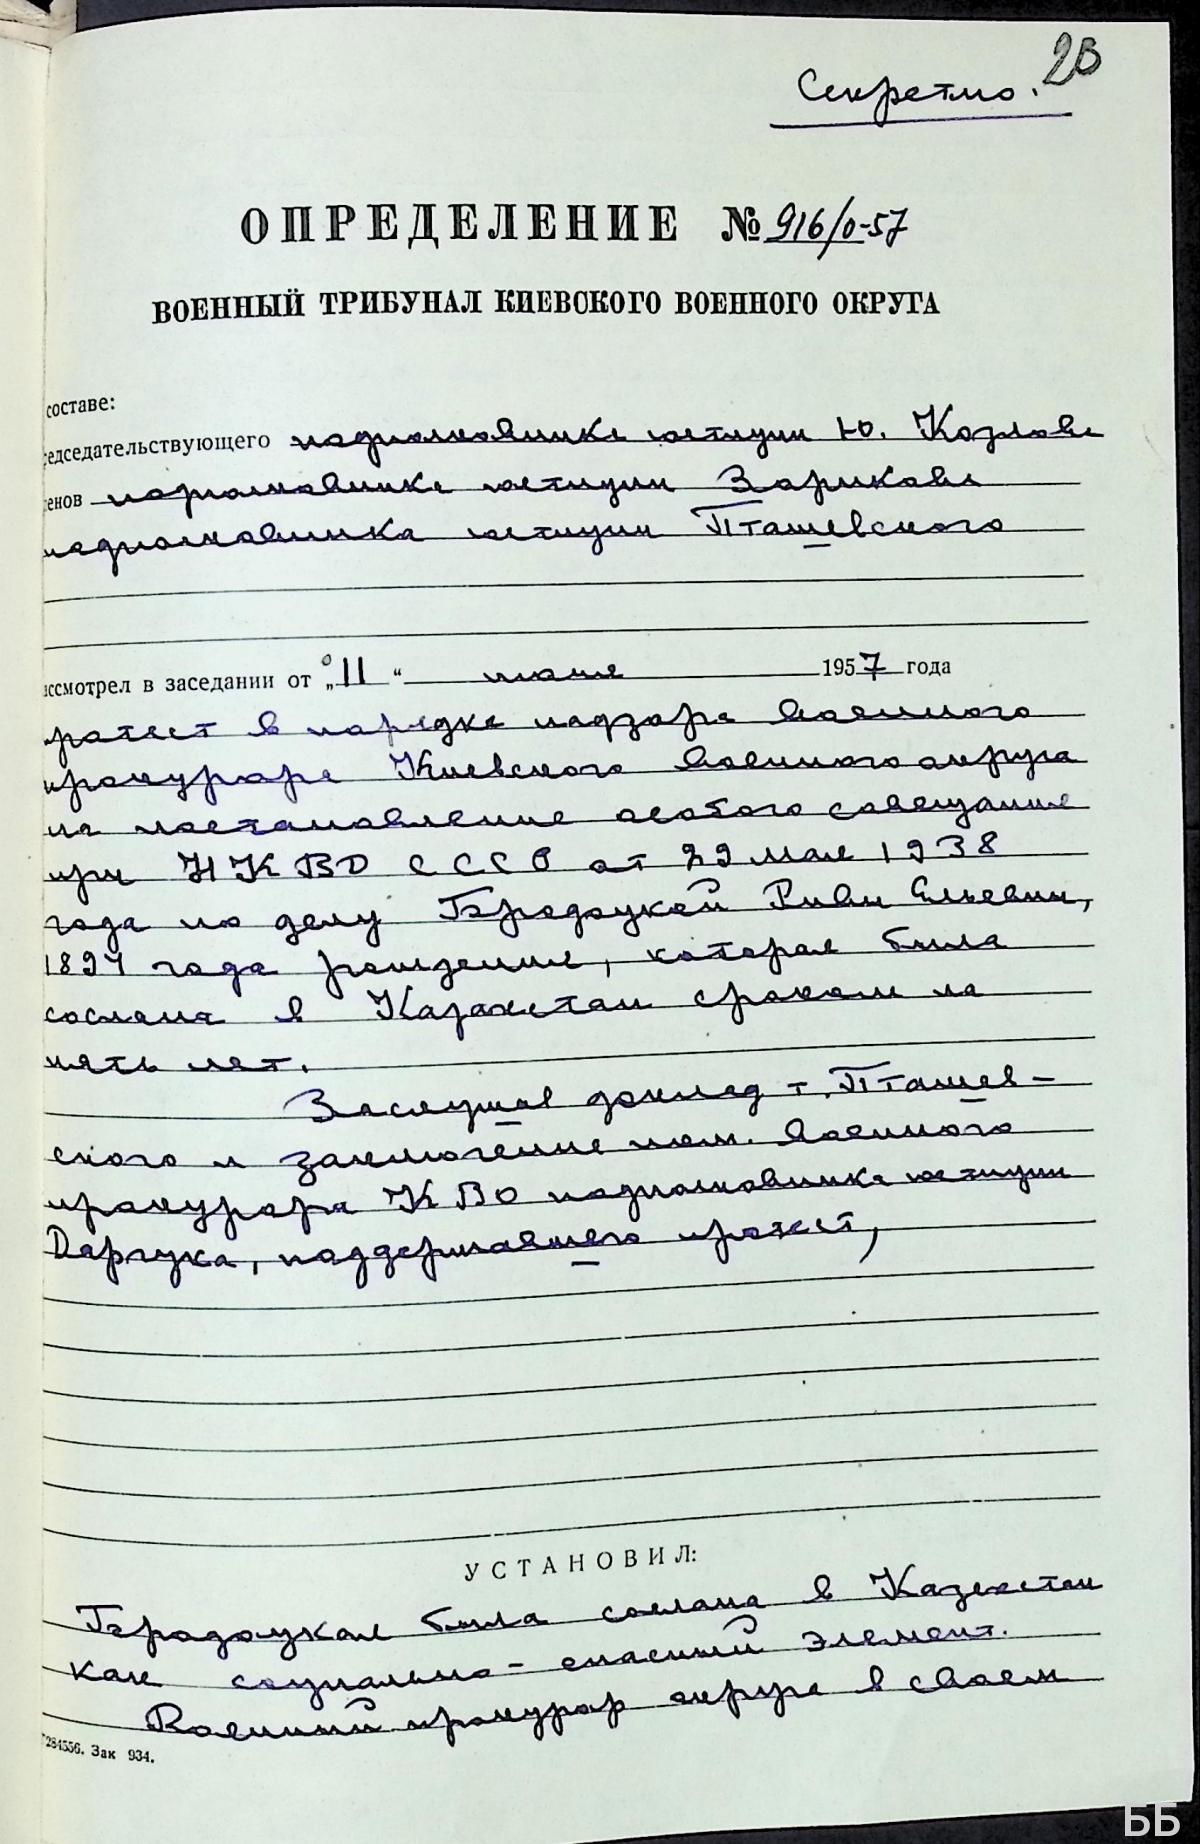 Секретно.
ОПРЕДЕЛЕНИЕ № 916/0-57
ВОЕННЫЙ ТРИБУНАЛ КИЕВСКОГО ВОЕННОГО ОКРУГА
составе:
едседательствующего подполковника юстиции Ю. Козлова
енов подполковника юстиции Зарикова
подполковника юстиции Пташевского
ассмотрел в заседании от „11“ 1957 года
ротест в порядке надзора Военного
прокурора Киевского Военного округа
на постановление особого совещания
при НКВД СССР от 29 мая 1938
года по делу Ривы Ельевны,
1897 года рождения, которая была
сослана в Казахстан сроком на
пять лет.
Заслушав доклад т. Пташев-
ского и заключение пом. Военного
прокурора КВО подполковника юстиции
поддержавшего протест,
УСТАНОВИЛ:
была сослана в Казахстан
как социально-опасный элемент.
Военный прокурор округа в своем
Г284556. Зак 934.
ББ